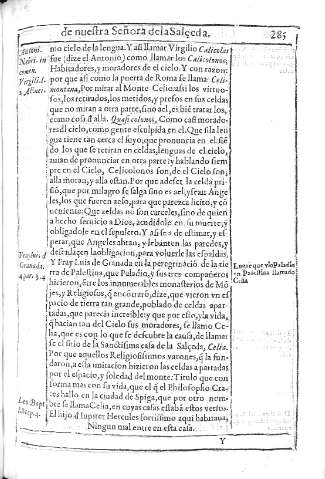 de nuestra Señora de la Salçeda. 285
mo cielo de la lengua. Y asi llamar Virgilio Celicolas
fue (dize el Antonio) como llamar los Celicolonos,
Habitadores, y moradores de el cielo. Y con razon:
por que asi como la puerta de Roma se llama Celi-
montana, Por mirar al Monte Celio: asi los virtuo-
sos, los retirados, los metidos, y presos en sus celdas
que no miran a otra parte, sino ael, es bié tratarlos,
como cosa d' alla. Quasi colonos, Como casi morado-
res dl cielo, como gente esculpida en el. Que si la len-
gua tiene tan cerca el suyo, que pronuncia en el: siē
do los que se retiran en celdas, lenguas de el cielo,
auian de pronunciar en otra parte? y hablando siem
pre en el Cielo, Celicolonos son, de el Cielo son,
alla moran, y alla estan. Por que
les, los que fueren a eso, para que parezca licito, y cō
ueniente: Que celdas no son carceles, sino de quien
a hecho seruicio a Dios, en su muerte, y
obligadole en el sepulcro. Y asi se a de estimar, y es
perar, que Angeles abran, y lebanten las paredes, y
desen la obligacion, para voluerle las espaldas.
Y Fray Luis de Granada en la peregrinació de la tie
rra de Palestina, que Paladio, y sus tres compañeros
hicieron, ētre los innumerables monasterios de Mō
jes, y Religiosos, q encōtró, dize, que vieron en el
pacio de tierra tan grande, poblado de celdas apar-
tadas, que parecia increible: y que por eso, y la vida,
q hacian tan del Cielo sus moradores, se llamo Ce-
lia, que es con lo que se descubre la causa, de llamar
se el sitio de la Santisima casa de la Salçeda, Celia.
Por que aquellos Religiosisimos varones, q la fun-
daron, a esa imitacion hizieron las celdas apartadas
por el espacio, y soledad del monte: Titulo que con
forma mas con su vida, que el q el Philosopho Cra-
tes hallo en la ciudad de Spiga, que por otro nom-
bre se llama Celia, en cuyas casas estaba estos versos.
El hijo d Iupiter Hercules fortisimo aqui habitaua,
Ningun mal entre en esta casa.
Y
Antoni.
Nebri. in
comen.
Virgilii.
2 AEnei.
Fray Luis d
Granada.
4 par.
Leo Bapt.
lib.
que vio Paladio
en Palestina llamado
Celia